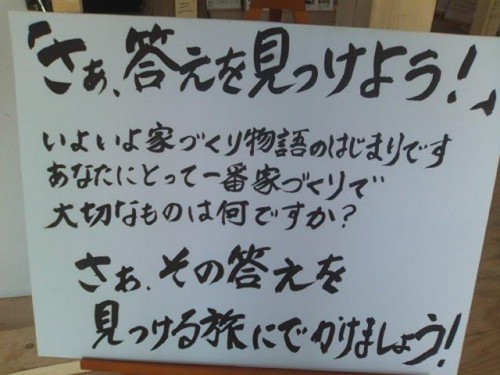 「さぁ、答えを見つけよう！」
いよいよ家づくり物語のはじまりです
あなたにとって一番家づくりで
大切なものは何ですか？
さぁ、その答えを
見つける旅にでかけましょう！